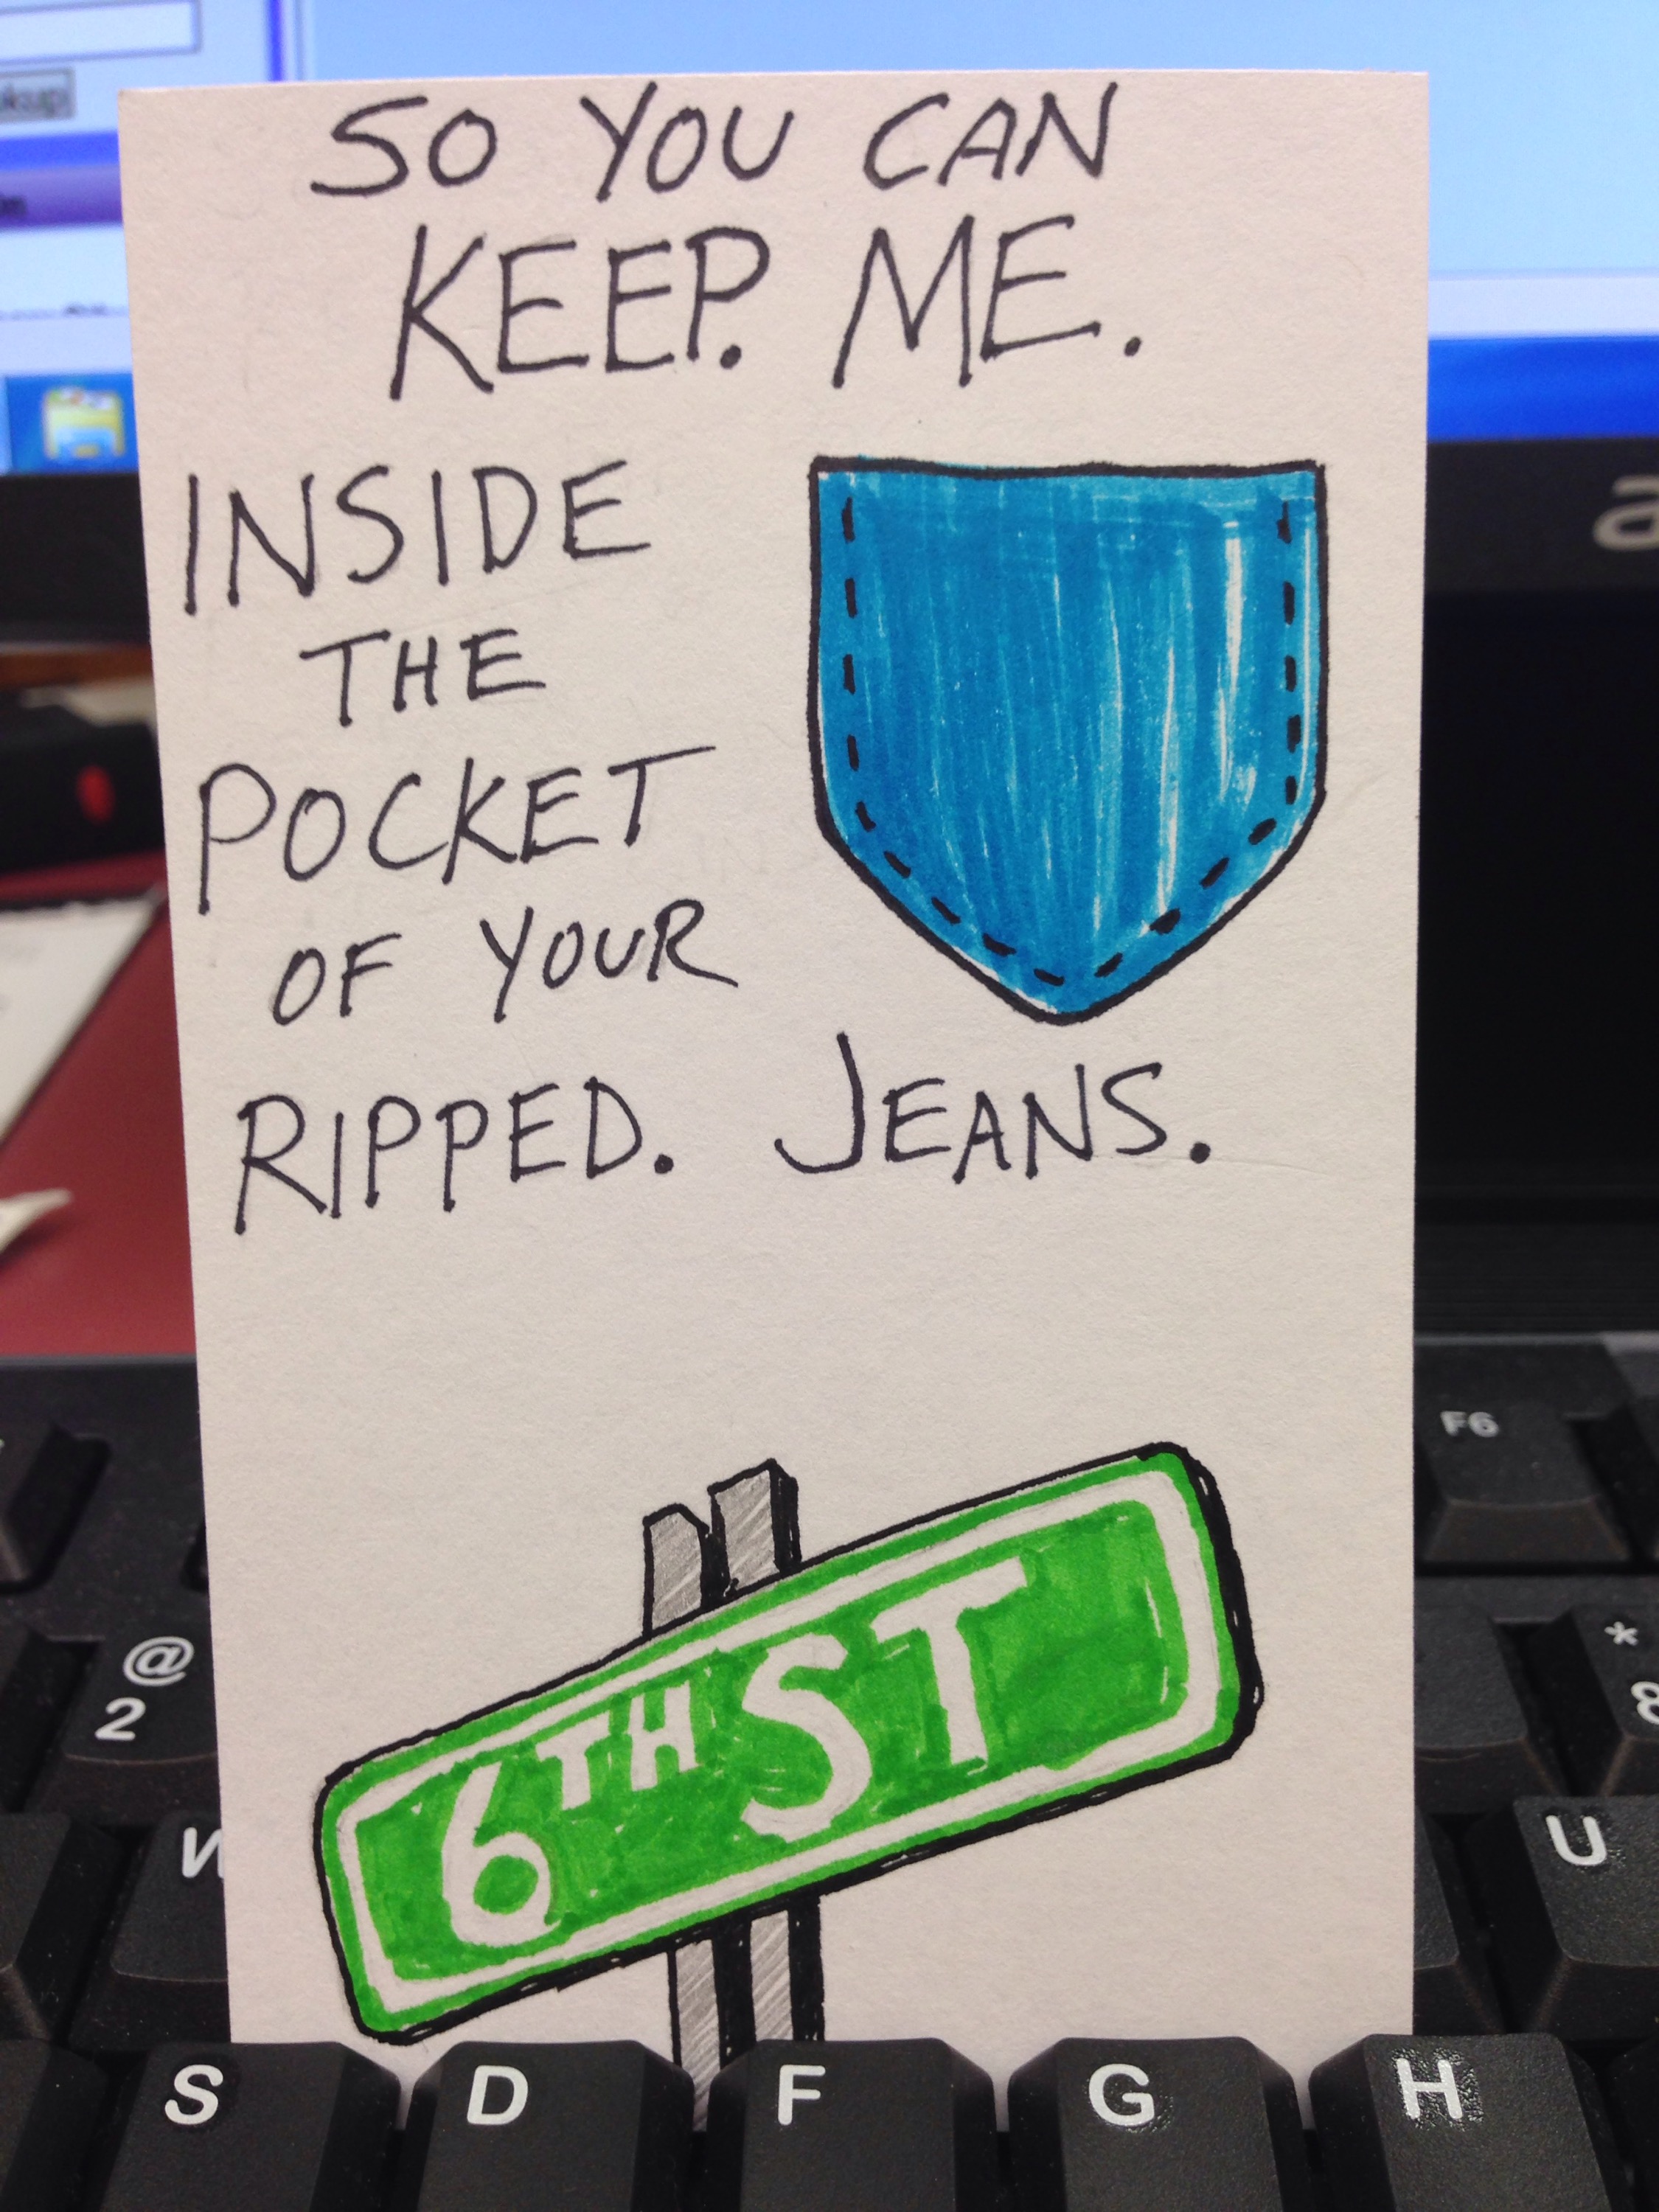 SO YOU CAN
KEEP. ME.
INSIDE
THE
POCKET
OF YOUR
RIPPED. JEANS.
6TH ST
F6
@
2
*
8
W
U
S
D
F
G
H